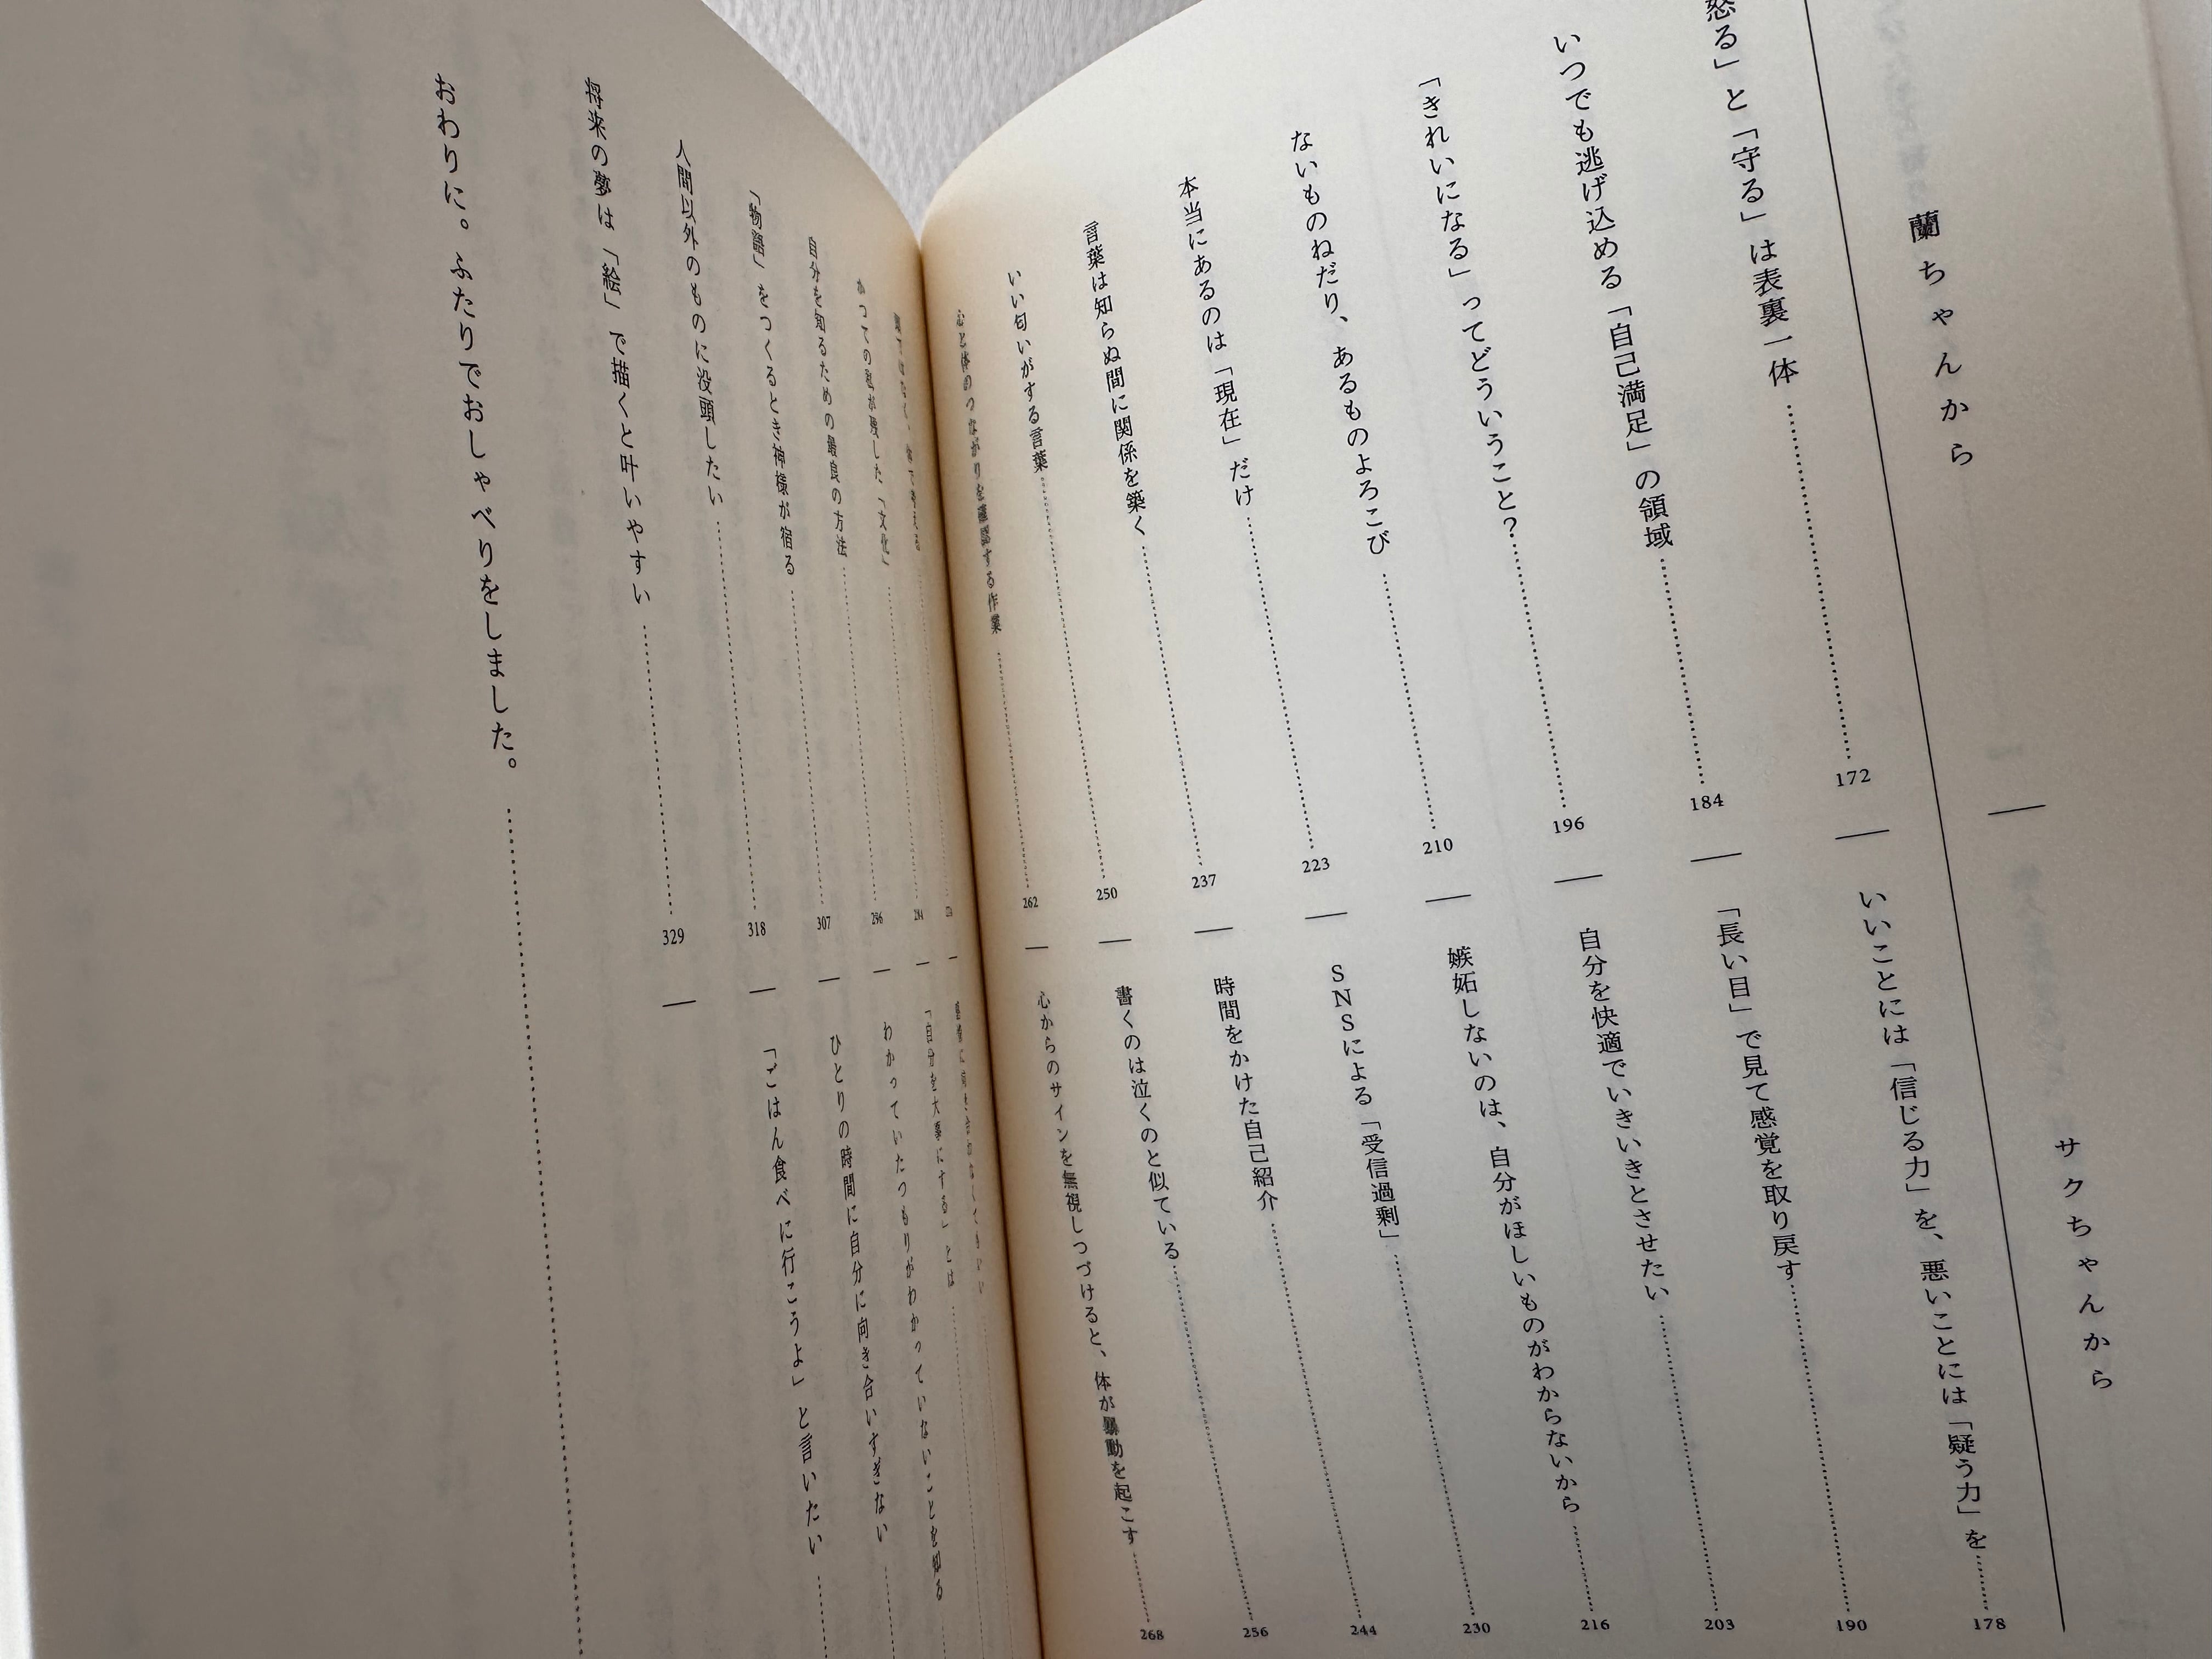 蘭ちゃんから
サクちゃんから
怒る」と「守る」は表裏一体 172
いいことには「信じる力」を、悪いことには「疑う力」を 178
いつでも逃げ込める「自己満足」の領域 184
「長い目」で見て感覚を取り戻す 190
「きれいになる」ってどういうこと? 196
自分を快適でいきいきとさせたい 203
ないものねだり、あるものよろこび 210
嫉妬しないのは、自分がほしいものがわからないから 216
本当にあるのは「現在」だけ 223
SNSによる「受信過剰」 230
言葉は知らぬ間に関係を築く 237
時間をかけた自己紹介 244
いい匂いがする言葉 250
書くのは泣くのと似ている 256
心と体のつながりを確認する作業 262
心からのサインを無視しつづけると、体が暴動を起こす 268
頭ではなく、体で考える
かつての私が残した「文化」 296
「自分を大事にする」とは
自分を知るための最良の方法 307
わかっていたつもりがわかっていないことを知る
「物語」をつくるとき神様が宿る
ひとりの時間に自分に向き合いすぎない
人間以外のものに没頭したい 318
「ごはん食べに行こうよ」と言いたい
将来の夢は「絵」で描くと叶いやすい 329
おわりに。ふたりでおしゃべりをしました。